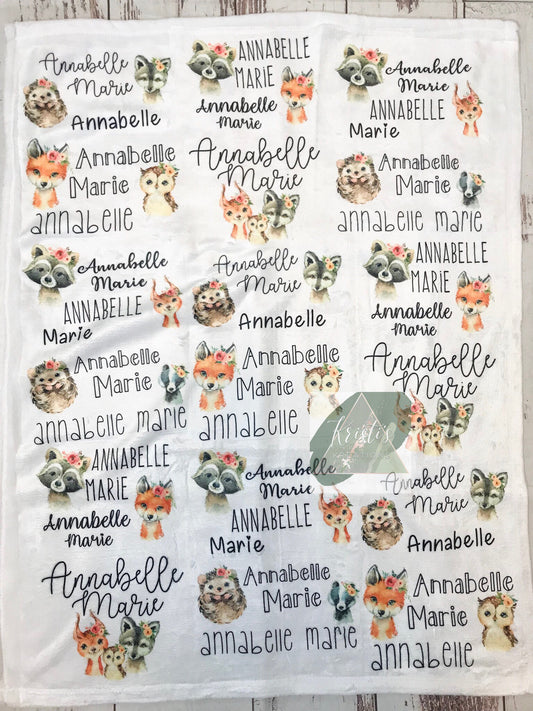 Annabelle
Marie
Annabelle
ANNABELLE
MARIE
Annabelle
Marie
Annabelle
Marie
ANNABELLE
Marie
Annabelle
Marie
annabelle
Annabelle
Marie
Annabelle
Marie
annabelle marie
Annabelle
Marie
ANNABELLE
Marie
Annabelle
Marie
Annabelle
ANNABELLE
MARIE
Annabelle
Marie
Annabelle
Marie
annabelle marie
Annabelle
Marie
annabelle
Annabelle
Marie
Kristi's
ANNABELLE
MARIE
Annabelle
Marie
Annabelle
Marie
ANNABELLE
Marie
Annabelle
Marie
Annabelle
Annabelle
Marie
Annabelle
Marie
annabelle marie
Annabelle
Marie
annabelle